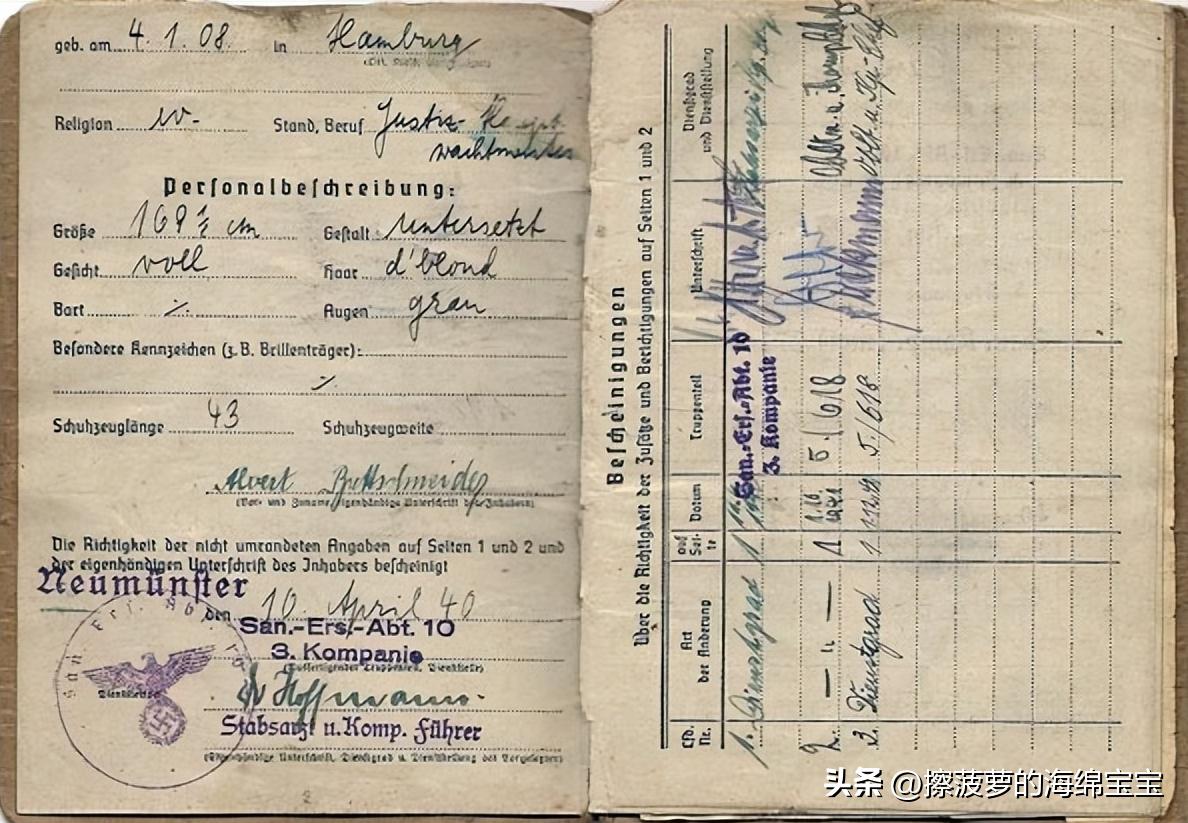 geb. am 4. 1. 08. in Hamburg
Religion ev. Stand, Beruf Justiz-
wachtmeister
Personalbeschreibung:
Größe 169 ½ cm Gestalt untersetzt
Gesicht voll Haar d'blond
Bart ./. Augen grau
Besondere Kennzeichen (z.B. Brillenträger):
./.
Schuhzeuglänge 43 Schuhzeugweite
(Vor- und Zuname, eigenhändige Unterschrift des Inhabers)
Die Richtigkeit der nicht umrandeten Angaben auf Seiten 1 und 2 und
der eigenhändigen Unterschrift des Inhabers bescheinigt
Neumünster
den 10. April 40
San.-Ers.-Abt. 10
3. Kompanie
Dr Hoffmann
Stabsarzt u. Komp. Führer
(Eigenhändige Unterschrift, Dienstgrad u. Dienststellung des Vorgesetzten)
2
Bescheinigungen
über die Richtigkeit der Zusätze und Berichtigungen auf Seiten 1 und 2
Lfd. Nr. Art der Änderung auf Seite Datum Truppenteil Unterschrift Dienstgrad und Dienststellung
1. Dienstgrad 1 San.-Ers.-Abt. 10
3. Kompanie
2. — " — 1 1.10. 1941 5./618
3. Dienstgrad 1 5/618
头条 @擦菠萝的海绵宝宝